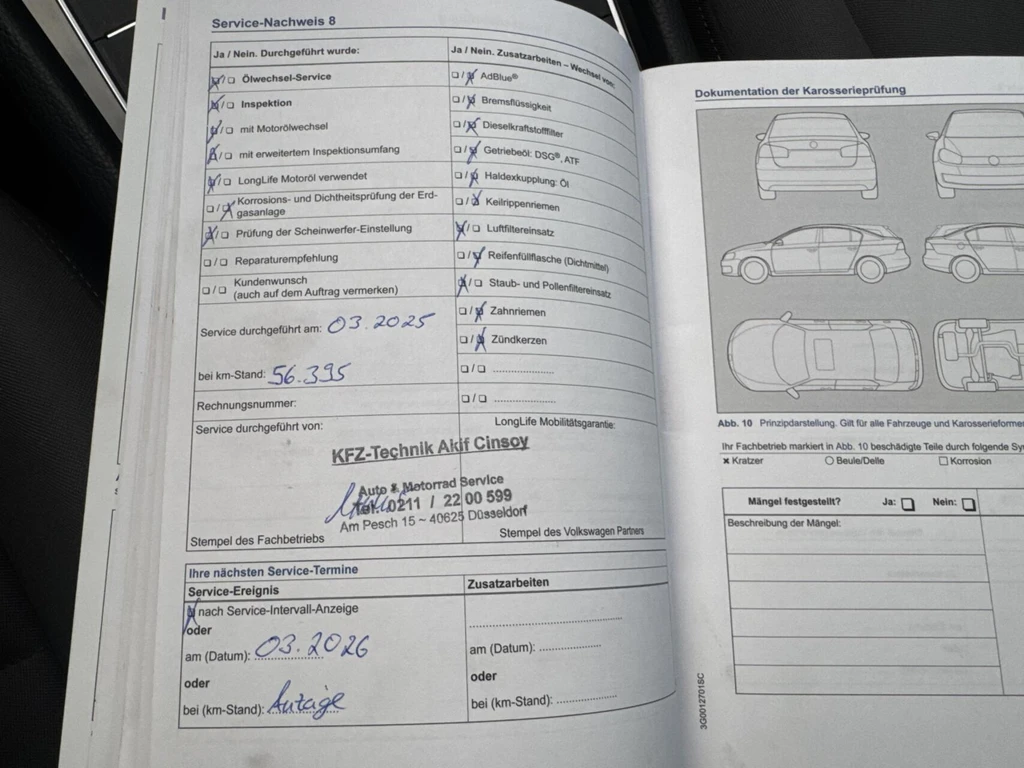 Service-Nachweis 8
Ja / Nein. Durchgeführt wurde:
Ölwechsel-Service
Inspektion
mit Motorölwechsel
mit erweitertem Inspektionsumfang
LongLife Motoröl verwendet
Korrosions- und Dichtheitsprüfung der Erd-
gasanlage
Prüfung der Scheinwerfer-Einstellung
Reparaturempfehlung
Kundenwunsch
(auch auf dem Auftrag vermerken)
Service durchgeführt am: 03.2025
bei km-Stand: 56.395
Rechnungsnummer:
Service durchgeführt von:
Ja / Nein. Zusatzarbeiten – Wechsel von:
AdBlue®
Bremsflüssigkeit
Dieselkraftstofffilter
Getriebeöl: DSG®, ATF
Haldexkupplung: Öl
Keilrippenriemen
Luftfiltereinsatz
Reifenfüllflasche (Dichtmittel)
Staub- und Pollenfiltereinsatz
Zahnriemen
Zündkerzen
LongLife Mobilitätsgarantie:
KFZ-Technik Akif Cinsoy
Auto & Motorrad Service
Tel. 0211 / 22 00 599
Am Pesch 15 ~ 40625 Düsseldorf
Stempel des Fachbetriebs
Stempel des Volkswagen Partners
Ihre nächsten Service-Termine
Service-Ereignis
nach Service-Intervall-Anzeige
oder
am (Datum): 03.2026
oder
bei (km-Stand):
Zusatzarbeiten
am (Datum):
oder
bei (km-Stand):
Dokumentation der Karosserieprüfung
Abb. 10 Prinzipdarstellung. Gilt für alle Fahrzeuge und
Ihr Fachbetrieb markiert in Abb. 10 beschädigte Teile durch folgende
Kratzer
Beule/Delle
Korrosion
Mängel festgestellt? Ja: Nein:
Beschreibung der Mängel:
3G0012701SC